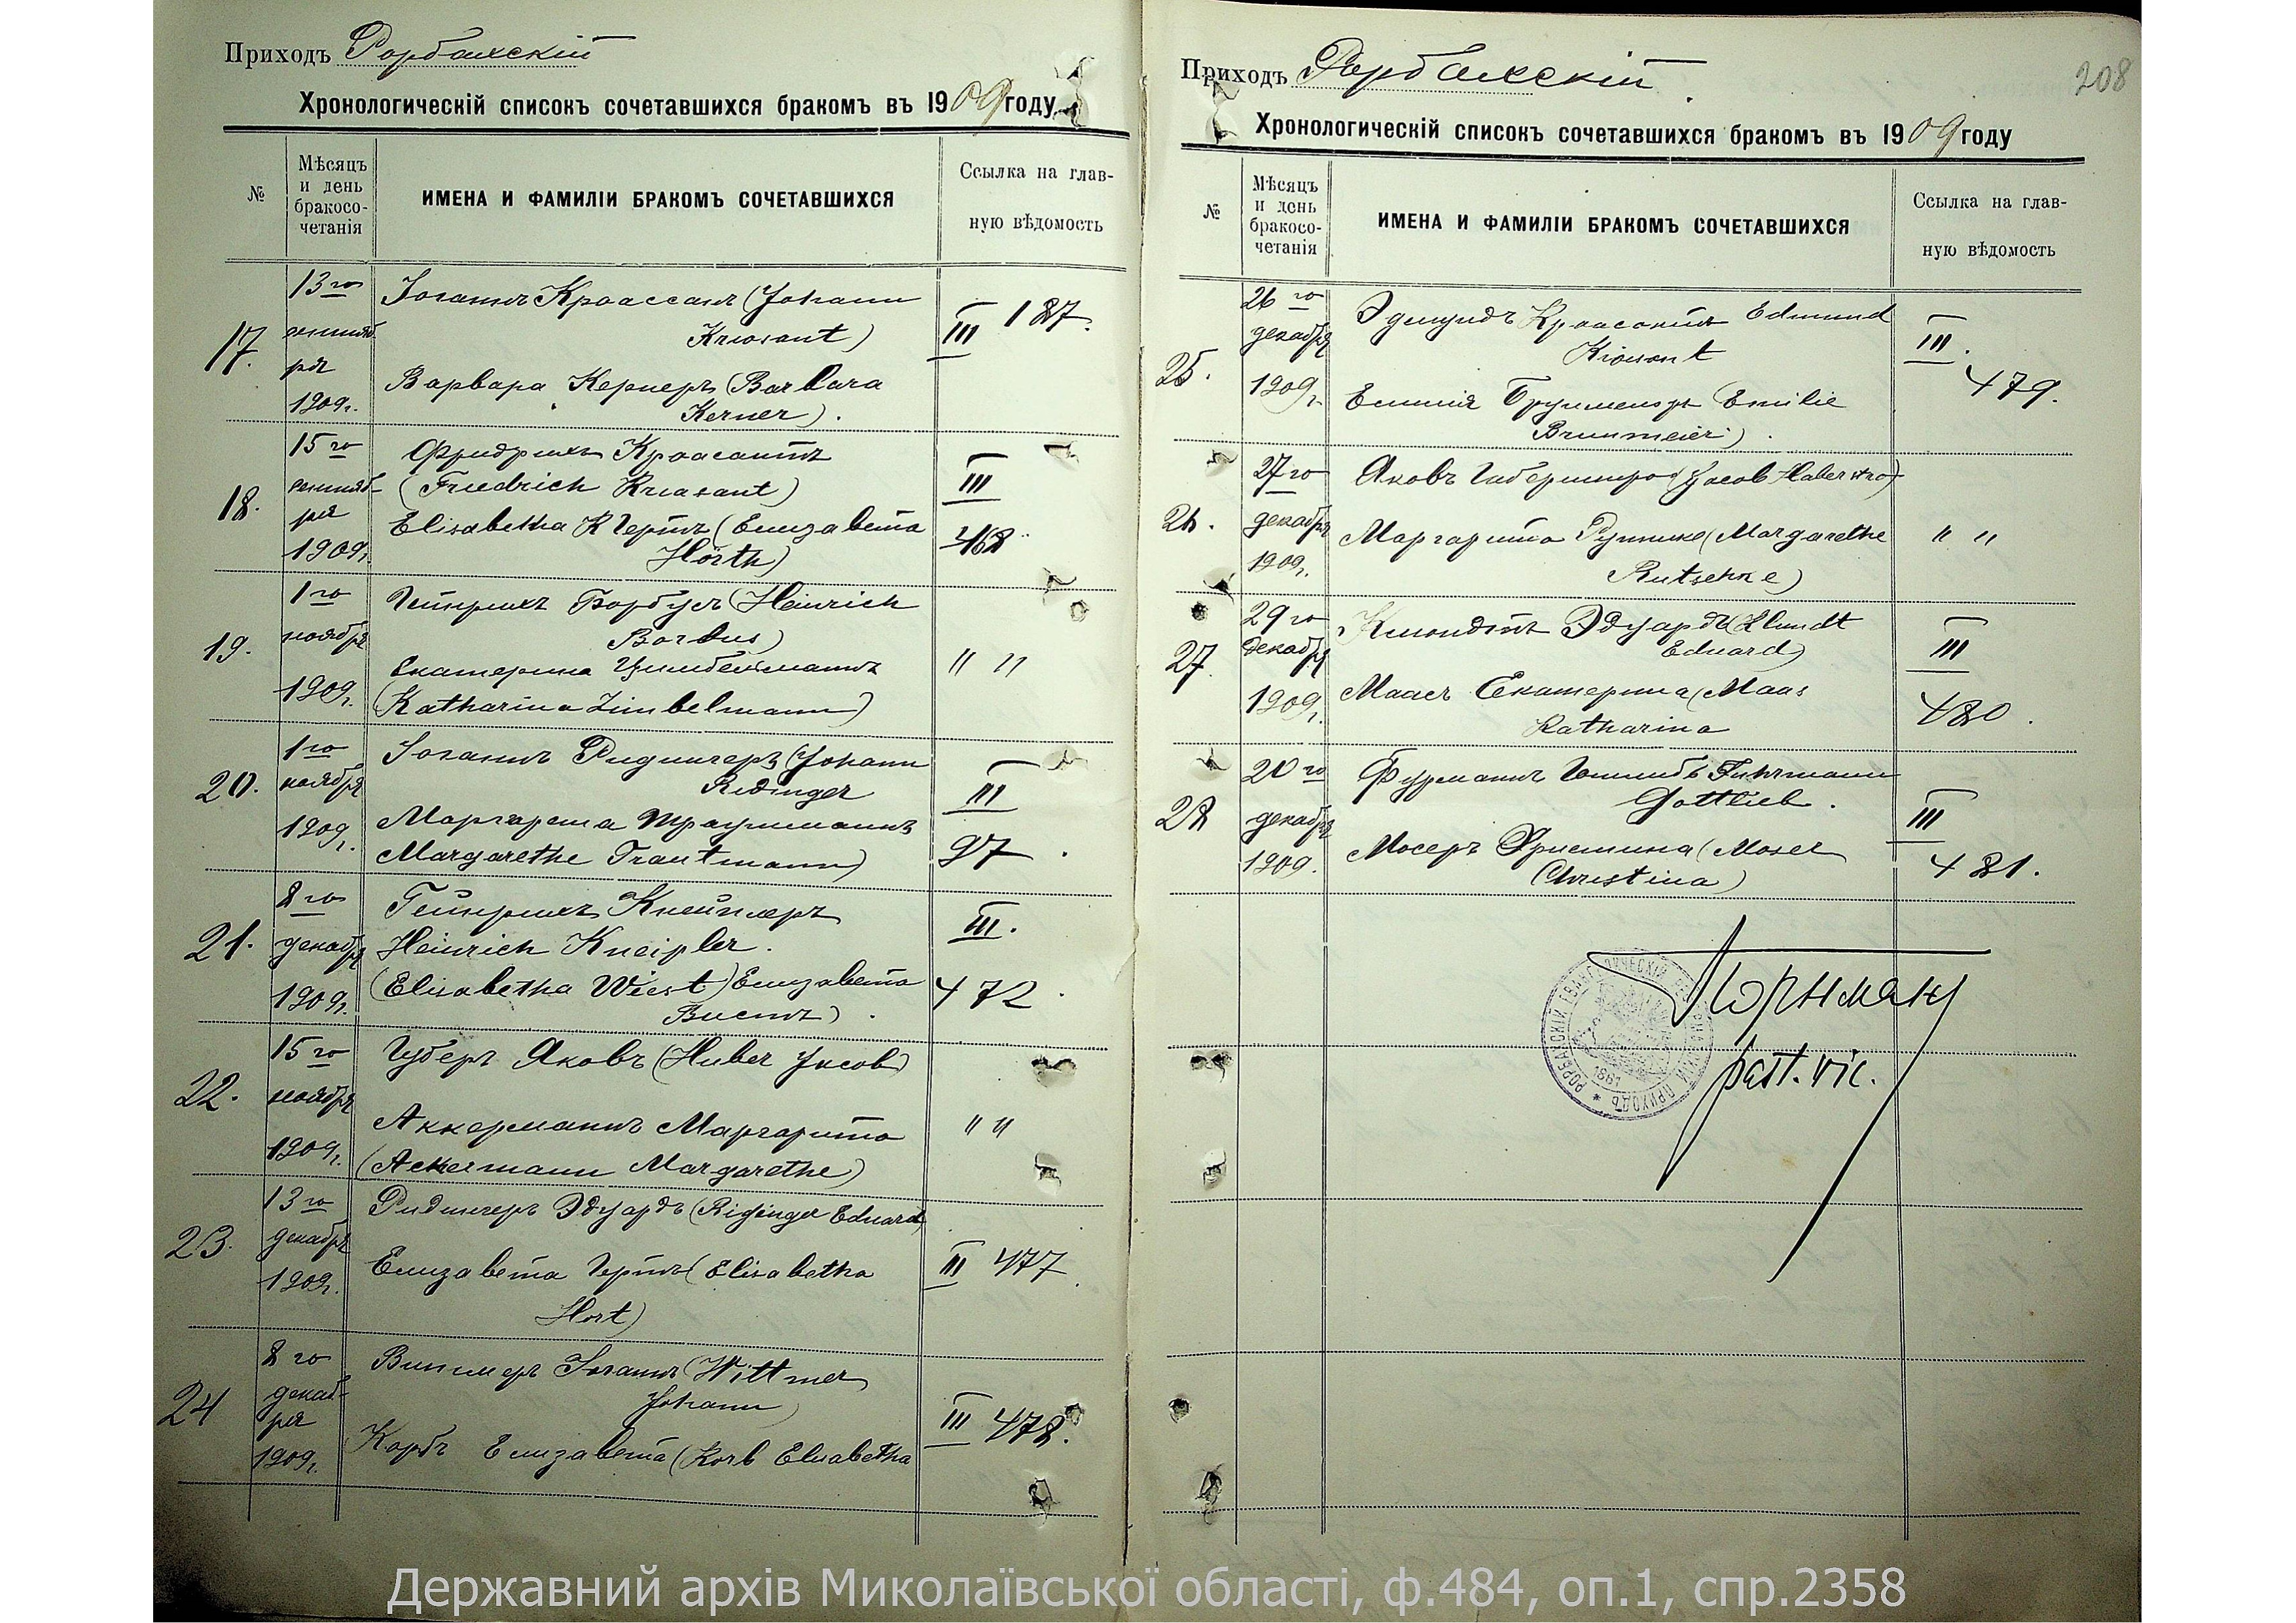 Приходъ Рорбахскій
Хронологическій списокъ сочетавшихся бракомъ въ 1909 году
№
Мѣсяцъ и день бракосо-четанія
ИМЕНА И ФАМИЛІИ БРАКОМЪ СОЧЕТАВШИХСЯ
Ссылка на глав-ную вѣдомость
17.
13го сентяб ря 1909г.
Іоганнъ Кроассантъ (Johann
Kroasant)
Варвара Кернеръ (Barbara
Kerner).
III 187.
18.
15го сентяб-ря 1909г.
Фридрихъ Кроасантъ
(Friedrich Kroasant)
Elisabetha Гертъ (Елизабета
Hörth)
III
468
19.
1го ноября 1909г.
Гейнрихъ Борбусъ (Heinrich
Borbus)
Екатерина Цимбельманнъ
(Katharina Zimbelmann)
" "
20.
1го ноября 1909г.
Іоганнъ Ридингеръ (Johann
Ridinger
Маргарета Траутманнъ
Margarethe Trautmann)
III
97.
21.
8го декабря 1909г.
Гейнрихъ Кнейплеръ
Heinrich Kneipler.
(Elisabetha Wiest) Елизабета
Вистъ).
III.
472.
22.
15го ноября 1909г.
Губеръ Яковъ (Huber Jacob)
Аккерманнъ Маргарета
(Ackermann Margarethe)
" "
23.
13го декабря 1909г.
Ридингеръ Эдуардъ (Ridinger Eduard)
Елизабета Гертъ (Elisabetha
Hört)
III 477.
24
8го декаб-ря 1909г.
Витмеръ Іоганнъ (Wittmer
Johann)
Корбъ Елизабета (Korb Elisabetha
III 478.
Приходъ Рорбахскій.
208
Хронологическій списокъ сочетавшихся бракомъ въ 1909 году
№
Мѣсяцъ и день бракосо-четанія
ИМЕНА И ФАМИЛІИ БРАКОМЪ СОЧЕТАВШИХСЯ
Ссылка на глав-ную вѣдомость
25.
26го декабря 1909г.
Эдмундъ Кроасантъ Edmund
Kroasant
Емилія Брунмейеръ Emilie
Brunmeier).
III.
479.
26.
27го декабря 1909г.
Яковъ Габерштро (Jacob Haberstro)
Маргарета Рутшке (Margarethe
Rutschke)
" "
27.
29го декабря 1909г.
Клюндтъ Эдуардъ (Klundt
Eduard)
Маасъ Екатерина (Maas
Katharina
III
480.
28
20го декабря 1909.
Фурманнъ Готлибъ Fuhrmann
Gottlieb.
Мосеръ Христина (Moser
Christina)
III
481.
РОРБАХСКІЙ ПРИХОДЪ
1891
past. vic.
Державний архів Миколаївської області, ф.484, оп.1, спр.2358